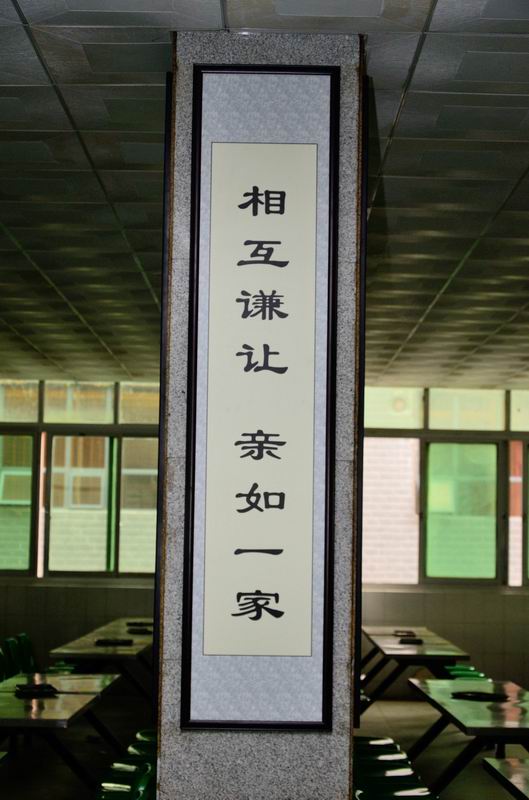 相互谦让 亲如一家